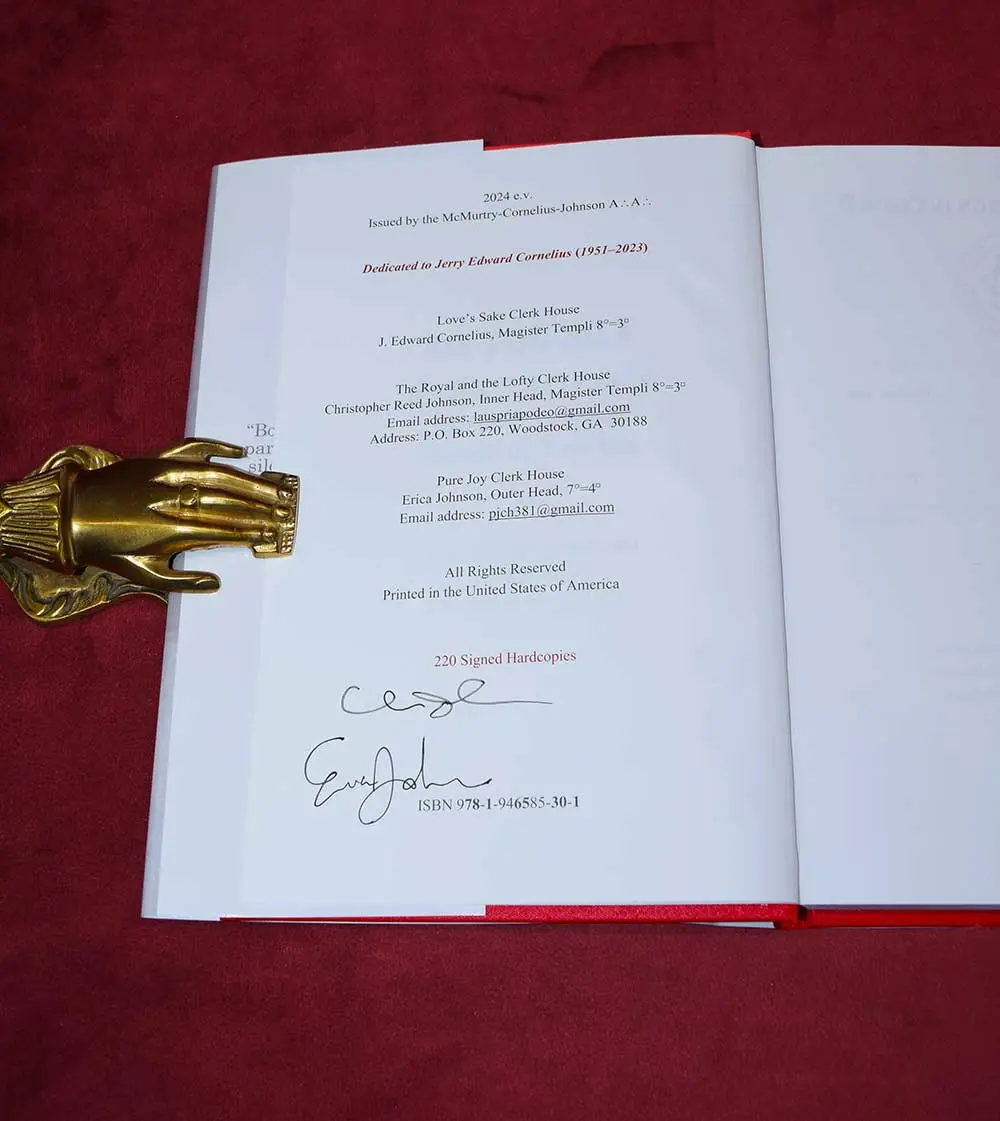 2024 e.v.
Issued by the McMurtry-Cornelius-Johnson A∴A∴
Dedicated to Jerry Edward Cornelius (1951–2023)
Love's Sake Clerk House
J. Edward Cornelius, Magister Templi 8°=3□
The Royal and the Lofty Clerk House
Christopher Reed Johnson, Inner Head, Magister Templi 8°=3□
Email address: lauspriapodeo@gmail.com
Address: P.O. Box 220, Woodstock, GA 30188
Pure Joy Clerk House
Erica Johnson, Outer Head, 7°=4□
Email address: pjch381@gmail.com
All Rights Reserved
Printed in the United States of America
220 Signed Hardcopies
ISBN 978-1-946585-30-1
"Bo
par
sile